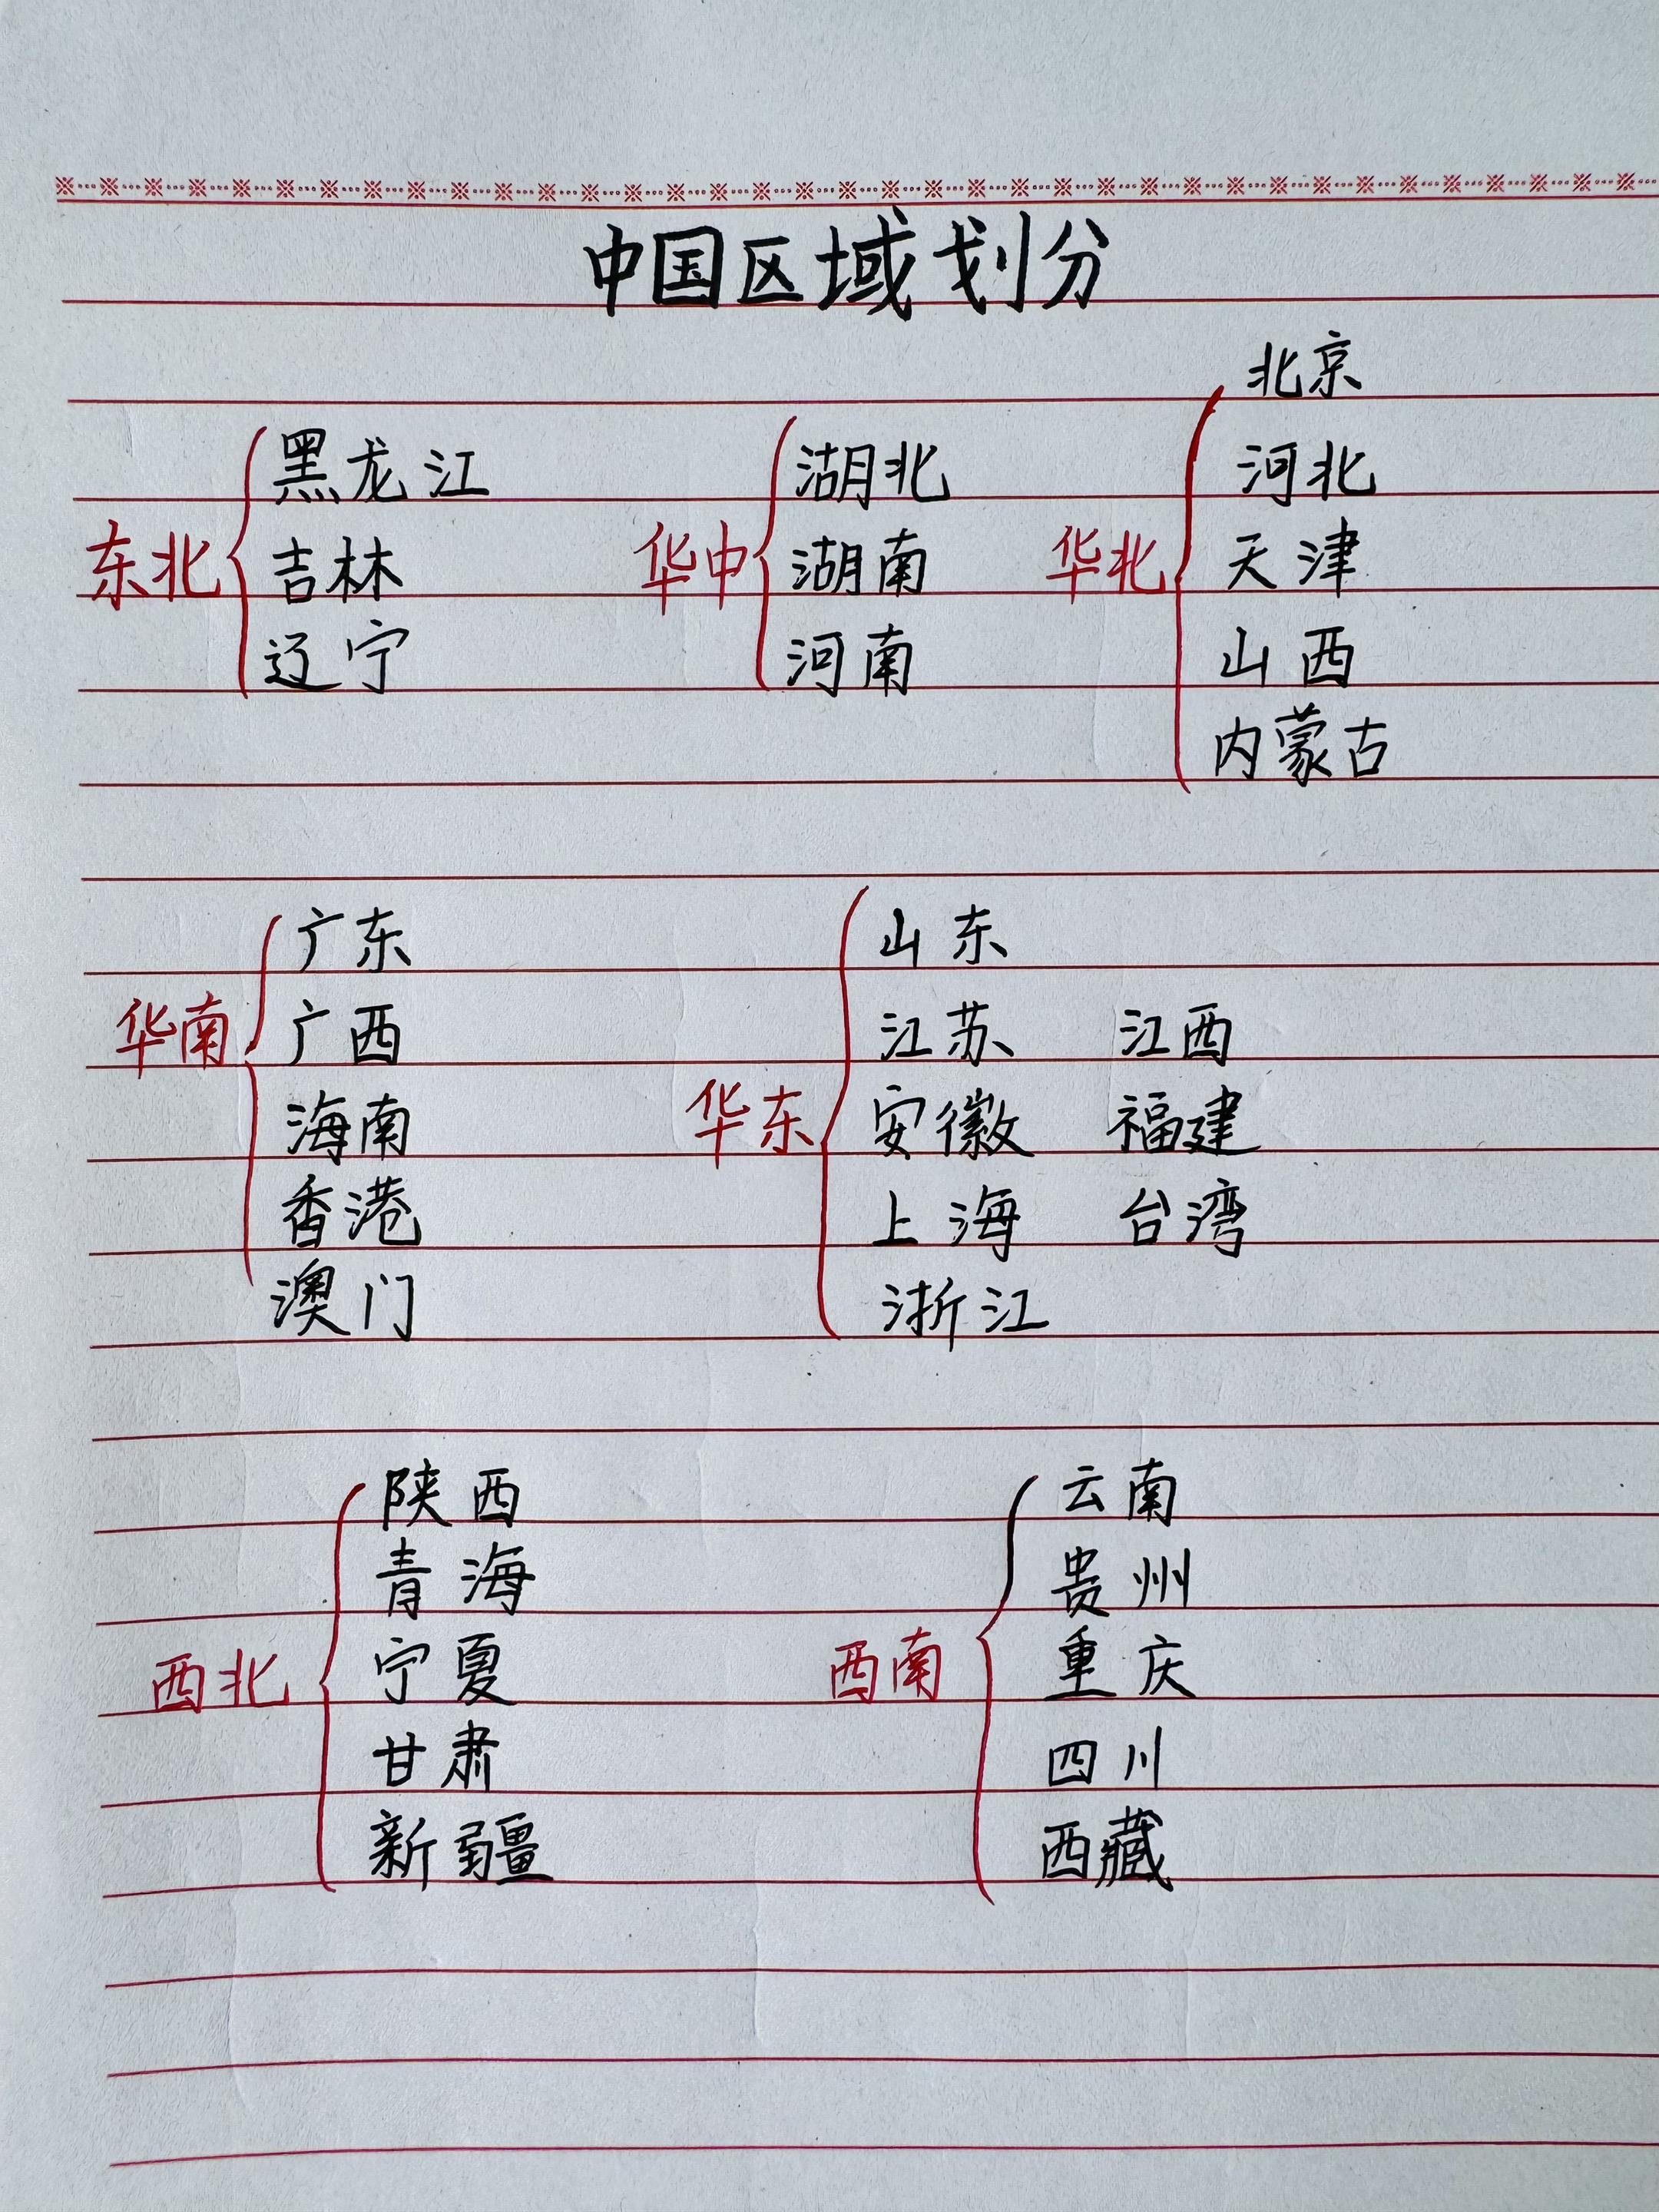 中国区域划分
东北
黑龙江
吉林
辽宁
华中
湖北
湖南
河南
华北
北京
河北
天津
山西
内蒙古
华南
广东
广西
海南
香港
澳门
华东
山东
江苏 江西
安徽 福建
上海 台湾
浙江
西北
陕西
青海
宁夏
甘肃
新疆
西南
云南
贵州
重庆
四川
西藏